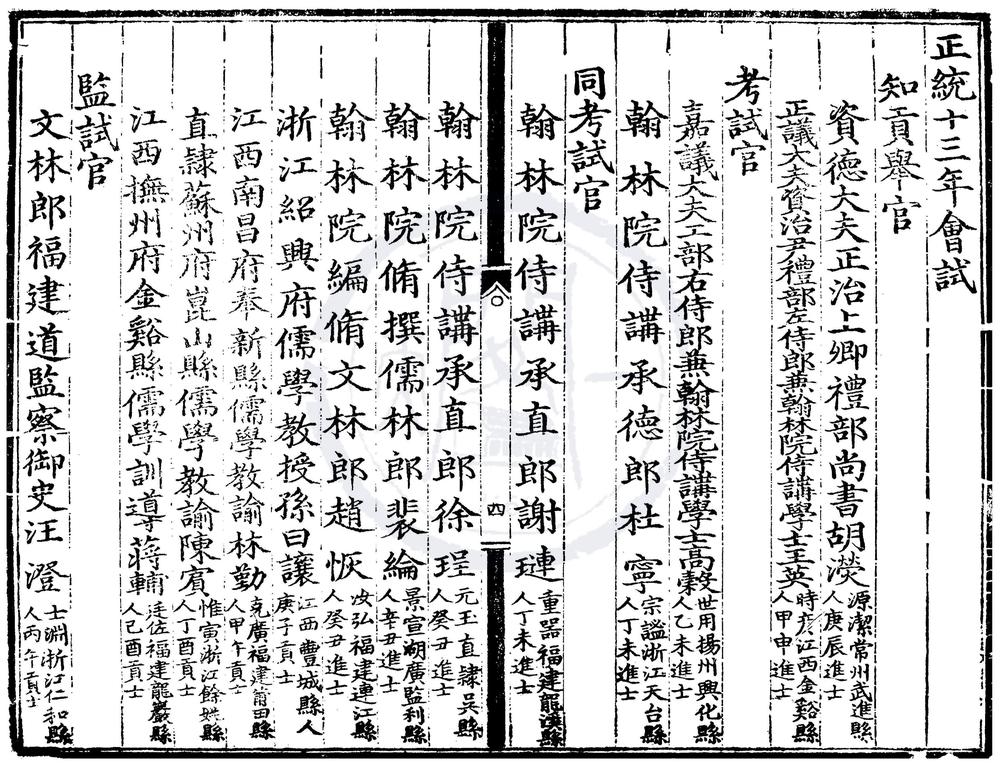 正統十三年會試
知貢舉官
資德大夫正治上卿禮部尚書胡濙源潔常州武進縣人庚辰進士
正議大夫資治尹禮部左侍郎兼翰林院侍講學士王英時彦江西金谿縣人甲申進士
考試官
嘉議大夫工部右侍郎兼翰林院侍講學士高穀世用揚州興化縣人乙未進士
翰林院侍講承德郎杜寧宗謐浙江天台縣人丁未進士
同考試官
翰林院侍講承直郎謝璉重器福建龍溪縣人丁未進士
四
翰林院侍講承直郎徐珵元玉直隸吳縣人癸丑進士
翰林院脩撰儒林郎裴綸景宣湖廣監利縣人辛丑進士
翰林院編脩文林郎趙恢汝弘福建連江縣人癸丑進士
浙江紹興府儒學教授孫曰讓江西豐城縣人庚子貢士
江西南昌府奉新縣儒學教諭林勤克廣福建莆田縣人甲午貢士
直隸蘇州府崑山縣儒學教諭陳賓惟寅浙江餘姚縣人丁酉貢士
江西撫州府金谿縣儒學訓導蔣輔廷佐福建龍巖縣人己酉貢士
監試官
文林郎福建道監察御史汪澄士淵浙江仁和縣人丙午貢士